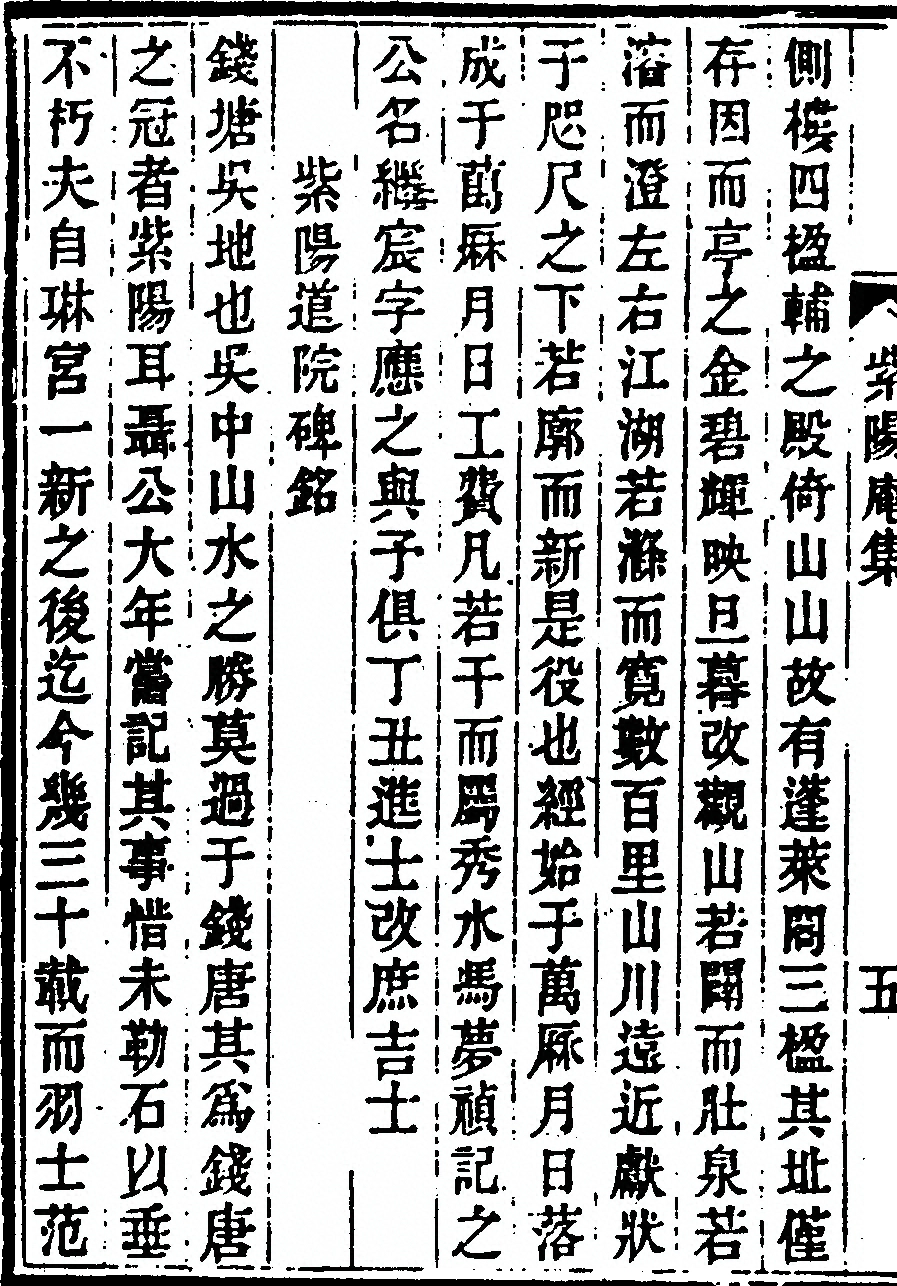 紫陽庵集
五
側樓四楹輔之殿倚山山故有蓬萊閣三楹其址僅
存因而亭之金碧輝映旦暮改觀山若闢而壯泉若
濬而澄左右江湖若滌而寬數百里山川遠近獻狀
于咫尺之下若廓而新是役也經始于萬厤月日落
成于萬厤月日工費凡若干而屬秀水馮夢禎記之
公名繼宸字應之與予俱丁丑進士改庶吉士
紫陽道院碑銘
錢塘吳地也吳中山水之勝莫過于錢唐其爲錢唐
之冠者紫陽耳聶公大年嘗記其事惜未勒石以垂
不朽夫自琳宮一新之後迄今幾三十載而羽士范